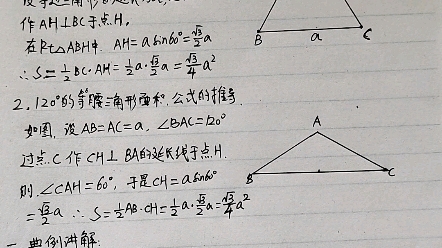 作AH⊥BC于点H,
在Rt△ABH中, AH=a sin60°=√3/2 a
∴S=1/2 BC·AH=1/2 a·√3/2 a=√3/4 a²
B a C
2. 120°的等腰三角形面积公式的推导
如图, 设AB=AC=a, ∠BAC=120°
A
过点C作CH⊥BA的延长线于点H.
则∠CAH=60°, 于是CH=a sin60°
B C
=√3/2 a ∴S=1/2 AB·CH=1/2 a·√3/2 a=√3/4 a²
典例讲解: